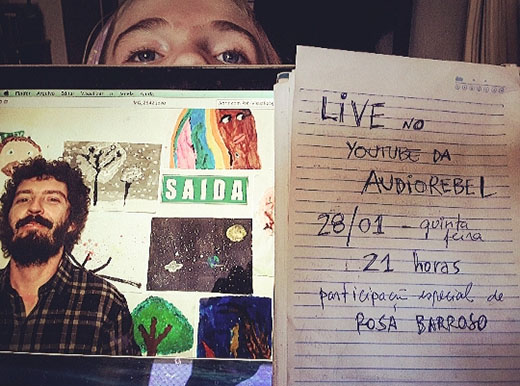 SAÍDA
LIVE NO
YOUTUBE DA
AUDIOREBEL
28/01 - quinta
feira
21 horas
participação especial de
ROSA BARROSO